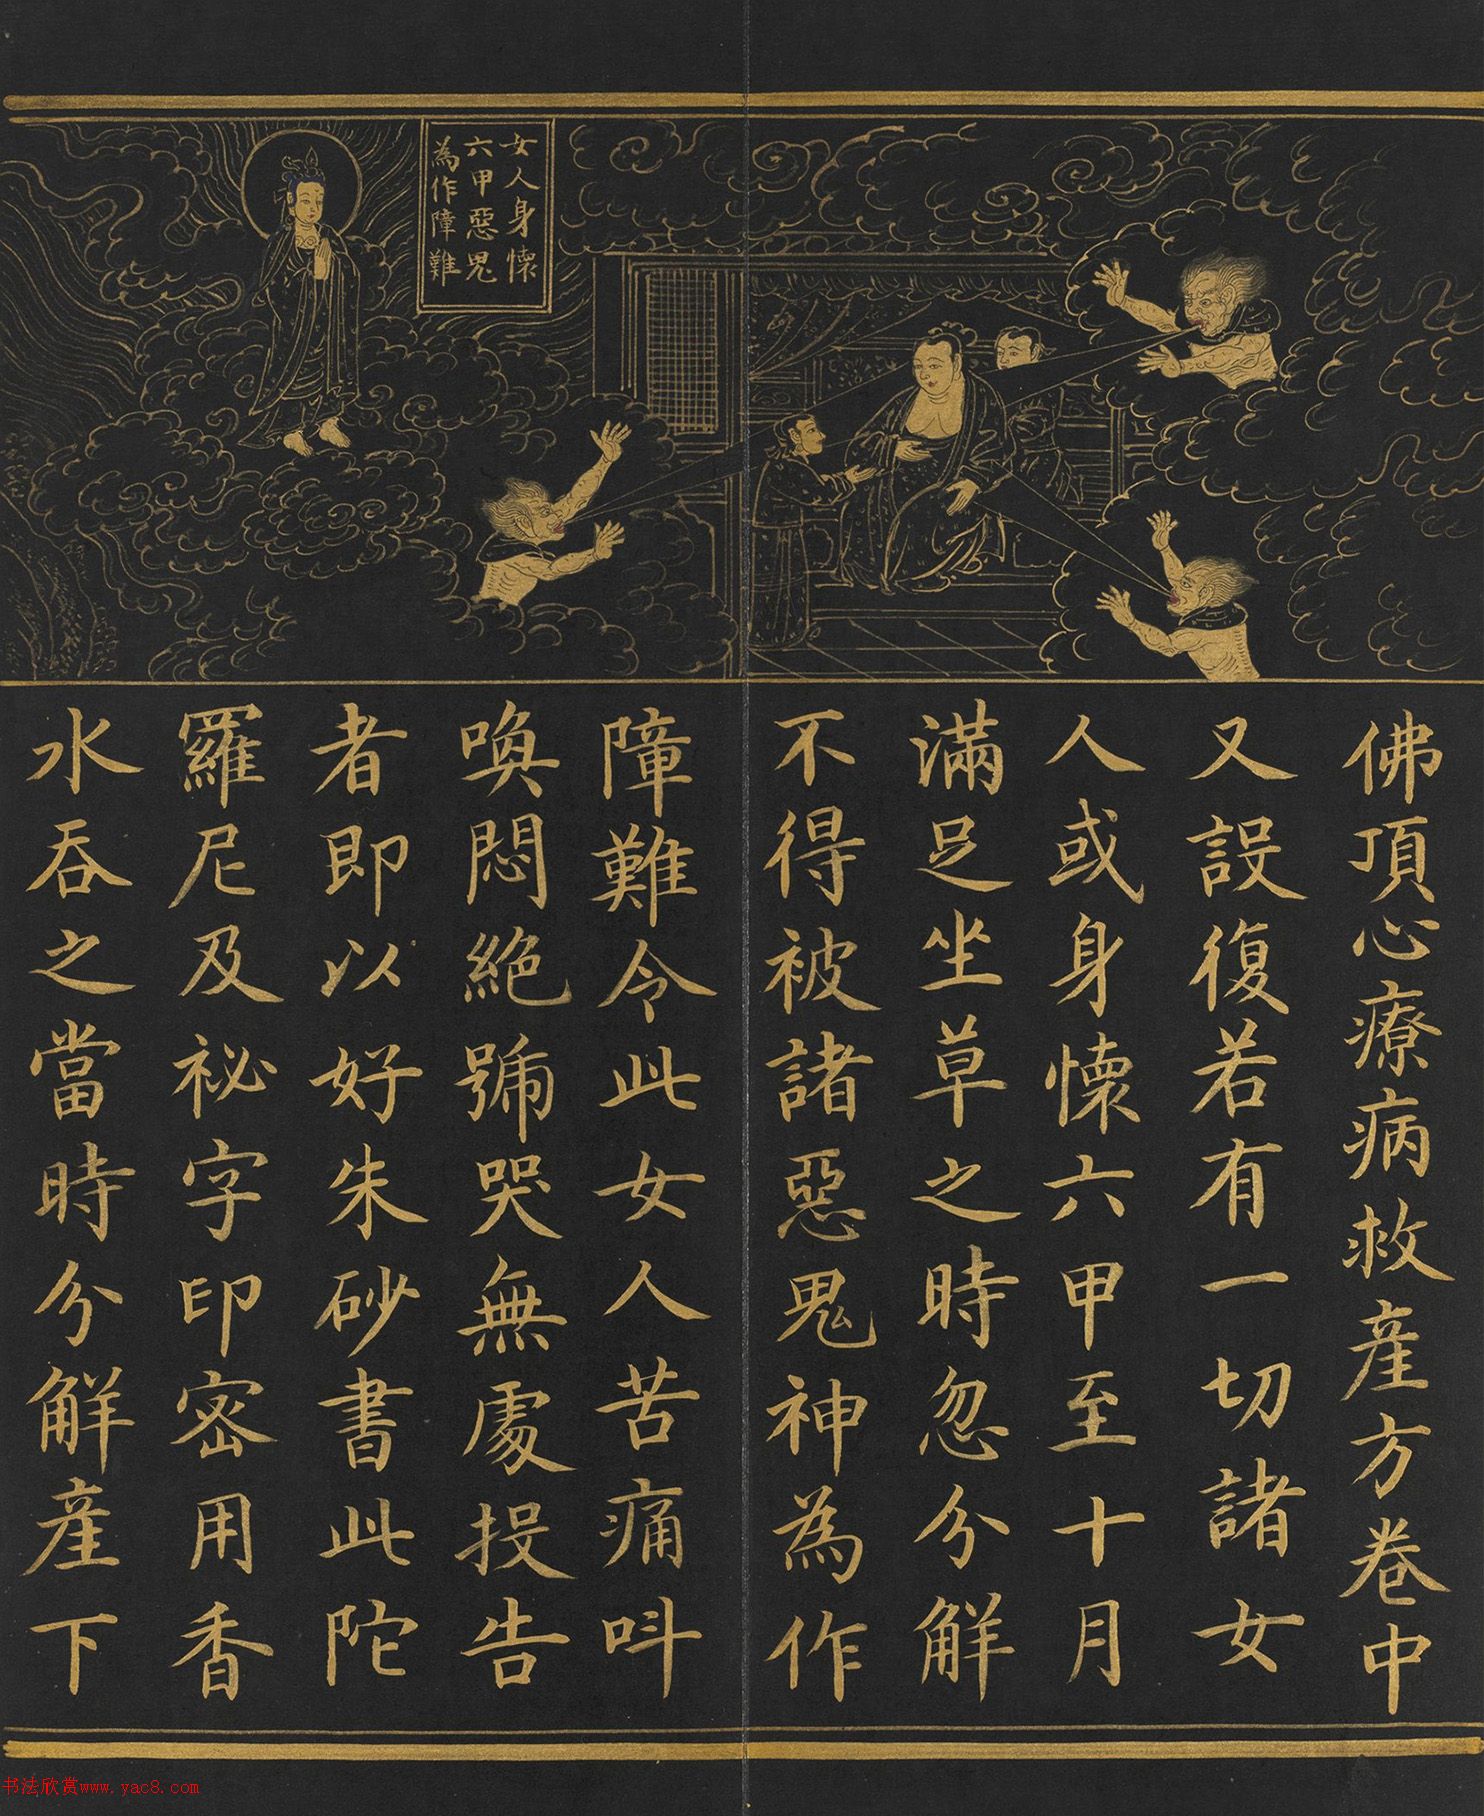 女人身懷
六甲惡鬼
為作障難
佛頂心療病救産方卷中
又設復若有一切諸女
人或身懷六甲至十月
滿足坐草之時忽分解
不得被諸惡鬼神為作
障難令此女人苦痛呌
喚悶絕號哭無處投告
者即以好朱砂書此陀
羅尼及祕字印密用香
水吞之當時分解産下
书法欣赏www.yac8.com